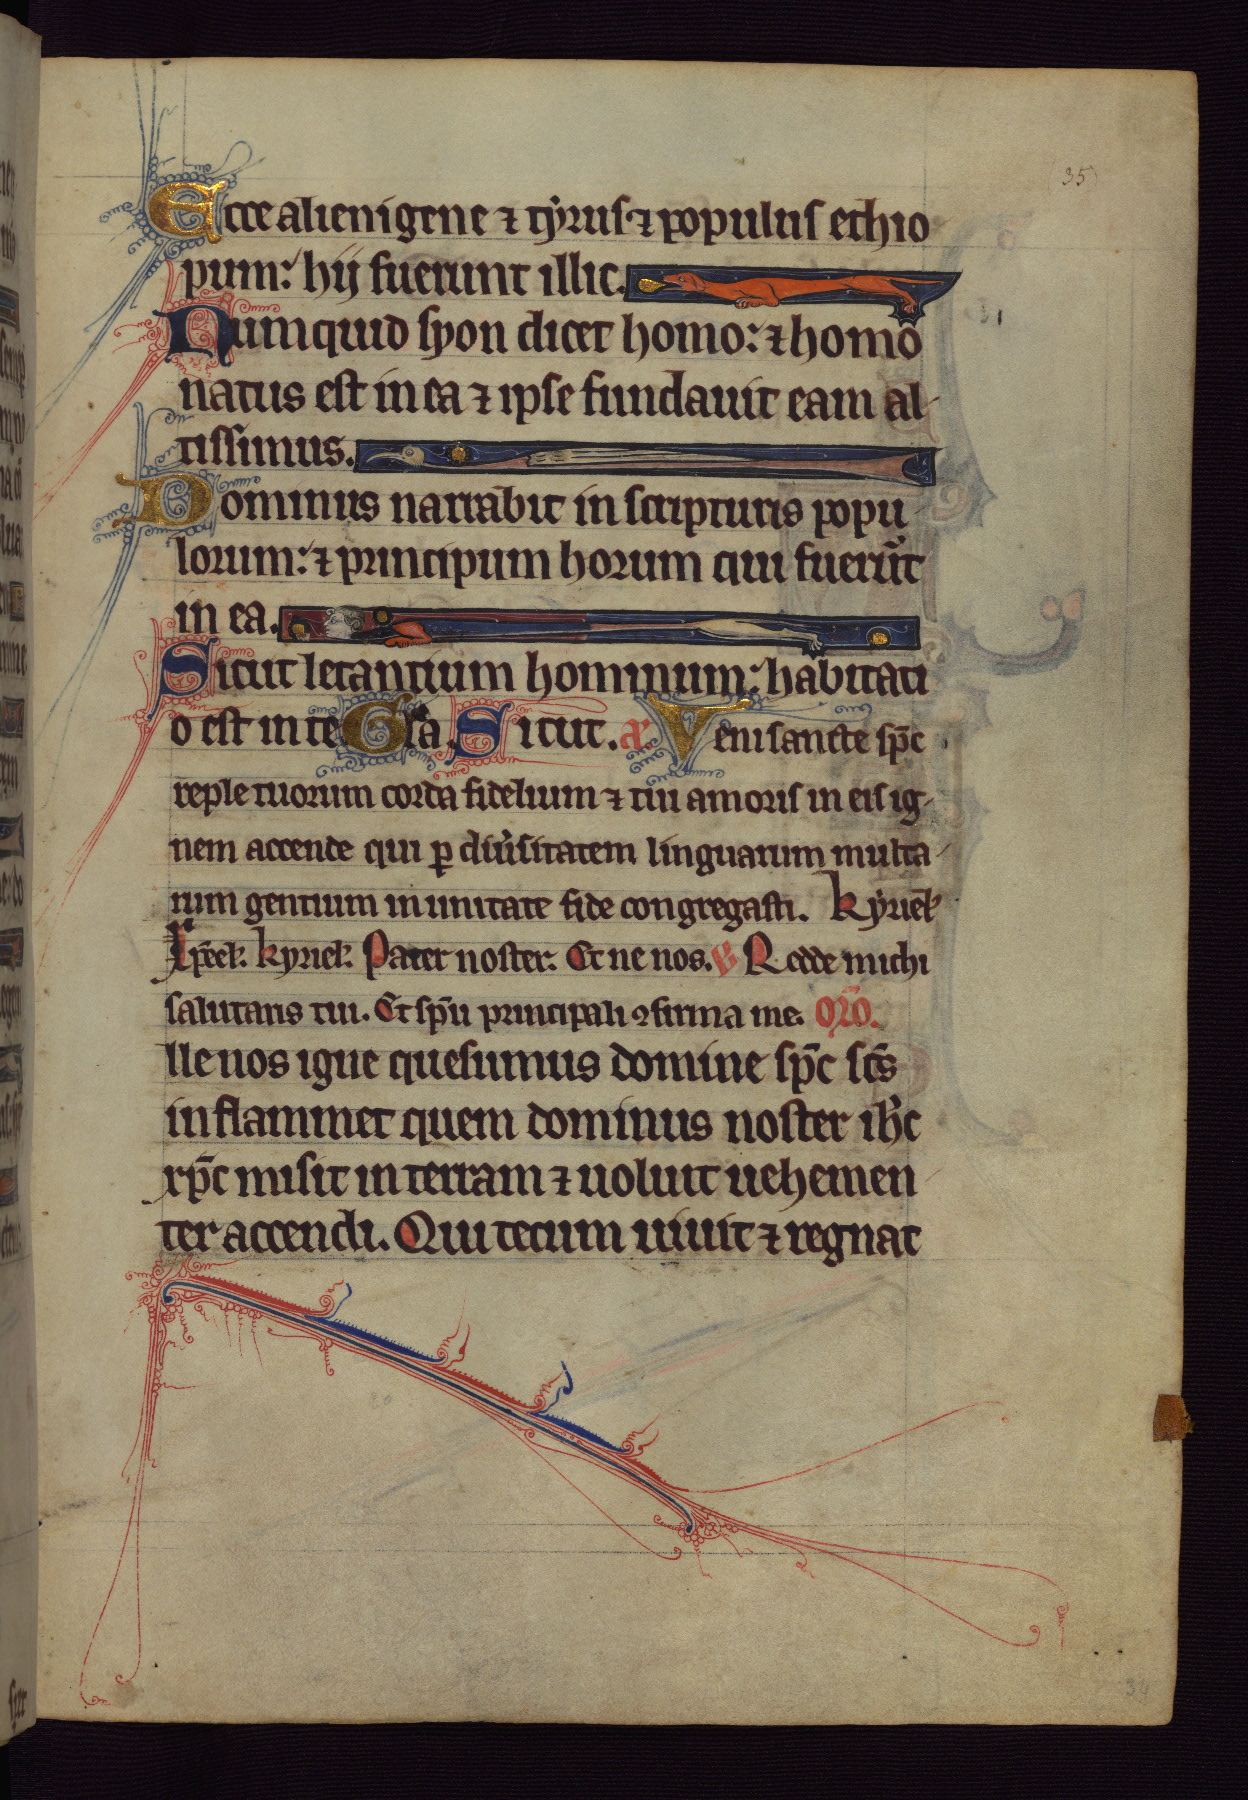 35
Ecce alienigene ⁊ tyrus ⁊ populus ethio
pum: hij fuerunt illic.
Numquid syon dicet homo: ⁊ homo
natus est in ea ⁊ ipse fundauit eam al-
tissimus.
Dominus narrabit in scripturis popu
lorum: ⁊ principum horum qui fuerūt
in ea.
Sicut letantium hominum: habitati
o est in te Gl'a. Sicut. a͞. Veni sancte sp̄c
reple tuorum corda fidelium ⁊ tui amoris in eis ig-
nem accende qui ꝑ diu̓sitatem linguarum multa
rum gentium in unitate fidei congregasti. kyriel'
xp̄el'. kyriel'. Pater noster. Et ne nos. ℣ Redde michi
salutaris tui. Et sp̄u principali ꝯfirma me. Oŕo.
lle nos igne quesumus domine sp̄c sc̄s
inflammet quem dominus noster ih̄c
xp̄c misit in terram ⁊ uoluit uehemen
ter accendi. Qui tecum uiuit ⁊ regnat
34